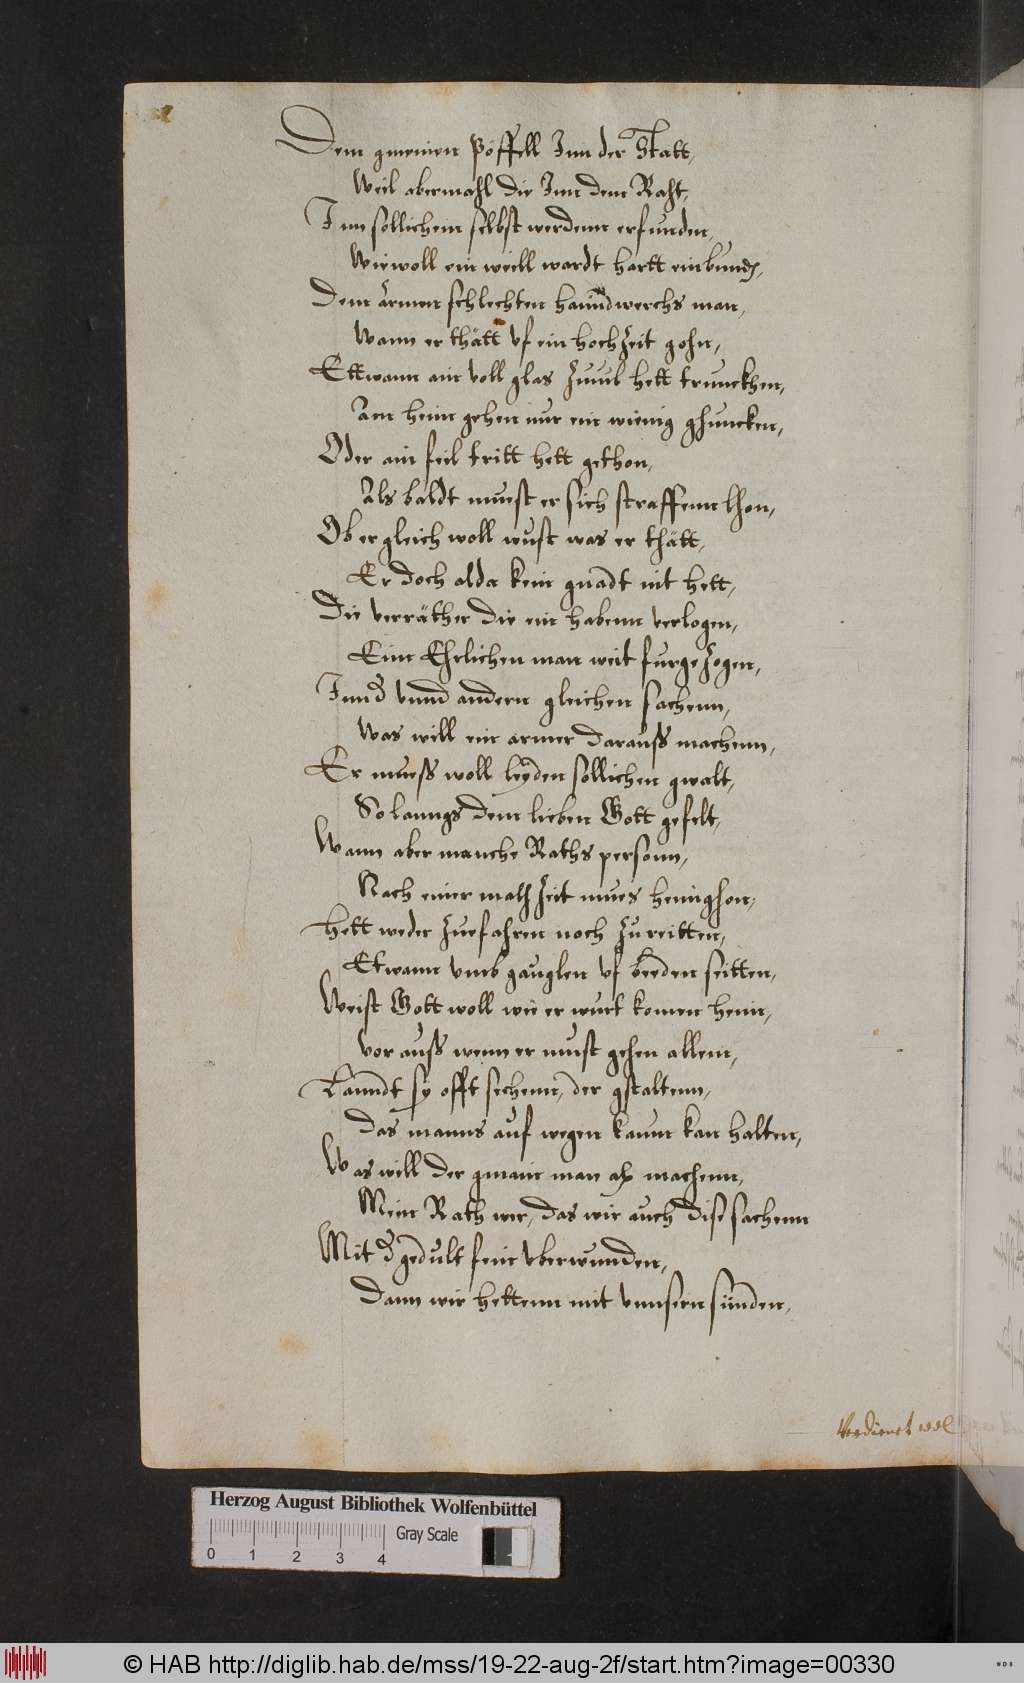 Dem gmeinen Pöffell Inn der Statt,
Weil abermahl die Inn dem Raht,
Inn sollichem selbst werdenn erfunden,
Wiewoll ein weill wardt hartt einbunden,
Dem armen schlechten hanndwerchs man,
Wann er thätt vf ein hochzeit gohn,
Ettwann ain voll glas zuuil hett trunckhen,
Am heim gehen nur ein wienig ghuncken,
Oder ain feil tritt hett gethon,
Als baldt muest er sich straffenn lhon,
Ob er gleich woll wust was er thätt,
Er doch alda kein gnadt nit hett,
Die verräther die ein habenn verlogen,
Eim Ehrlichen man weit furgezogen,
Inn d vnnd andern gleichen sachenn,
Was will ein armer darauss machenn,
Er muess woll leyden sollichen gwalt,
So lanngs dem lieben Gott gefelt,
Wann aber manche Raths personn,
Nach einer malzeit mues heimghon,
Hett weder zuefahren noch zureitten,
Etwann vmb gauglen vf beeden seitten,
Weist Gott woll wie er wurt komen heim,
Vor auss wenn er must gehen allein,
Kanndt sy offt sechenn, der gstaltenn,
Das manns auf wegen kaum kan halten,
Was will der gmain man als machenn,
Mein Rath wer, das wir auch dise sachenn
Mit d gedult fein vberwunden,
Dann wir hettenn mit vnnsern sünden,
Verdienet wol
Herzog August Bibliothek Wolfenbüttel
Gray Scale
0 1 2 3 4
© HAB http://diglib.hab.de/mss/19-22-aug-2f/start.htm?image=00330